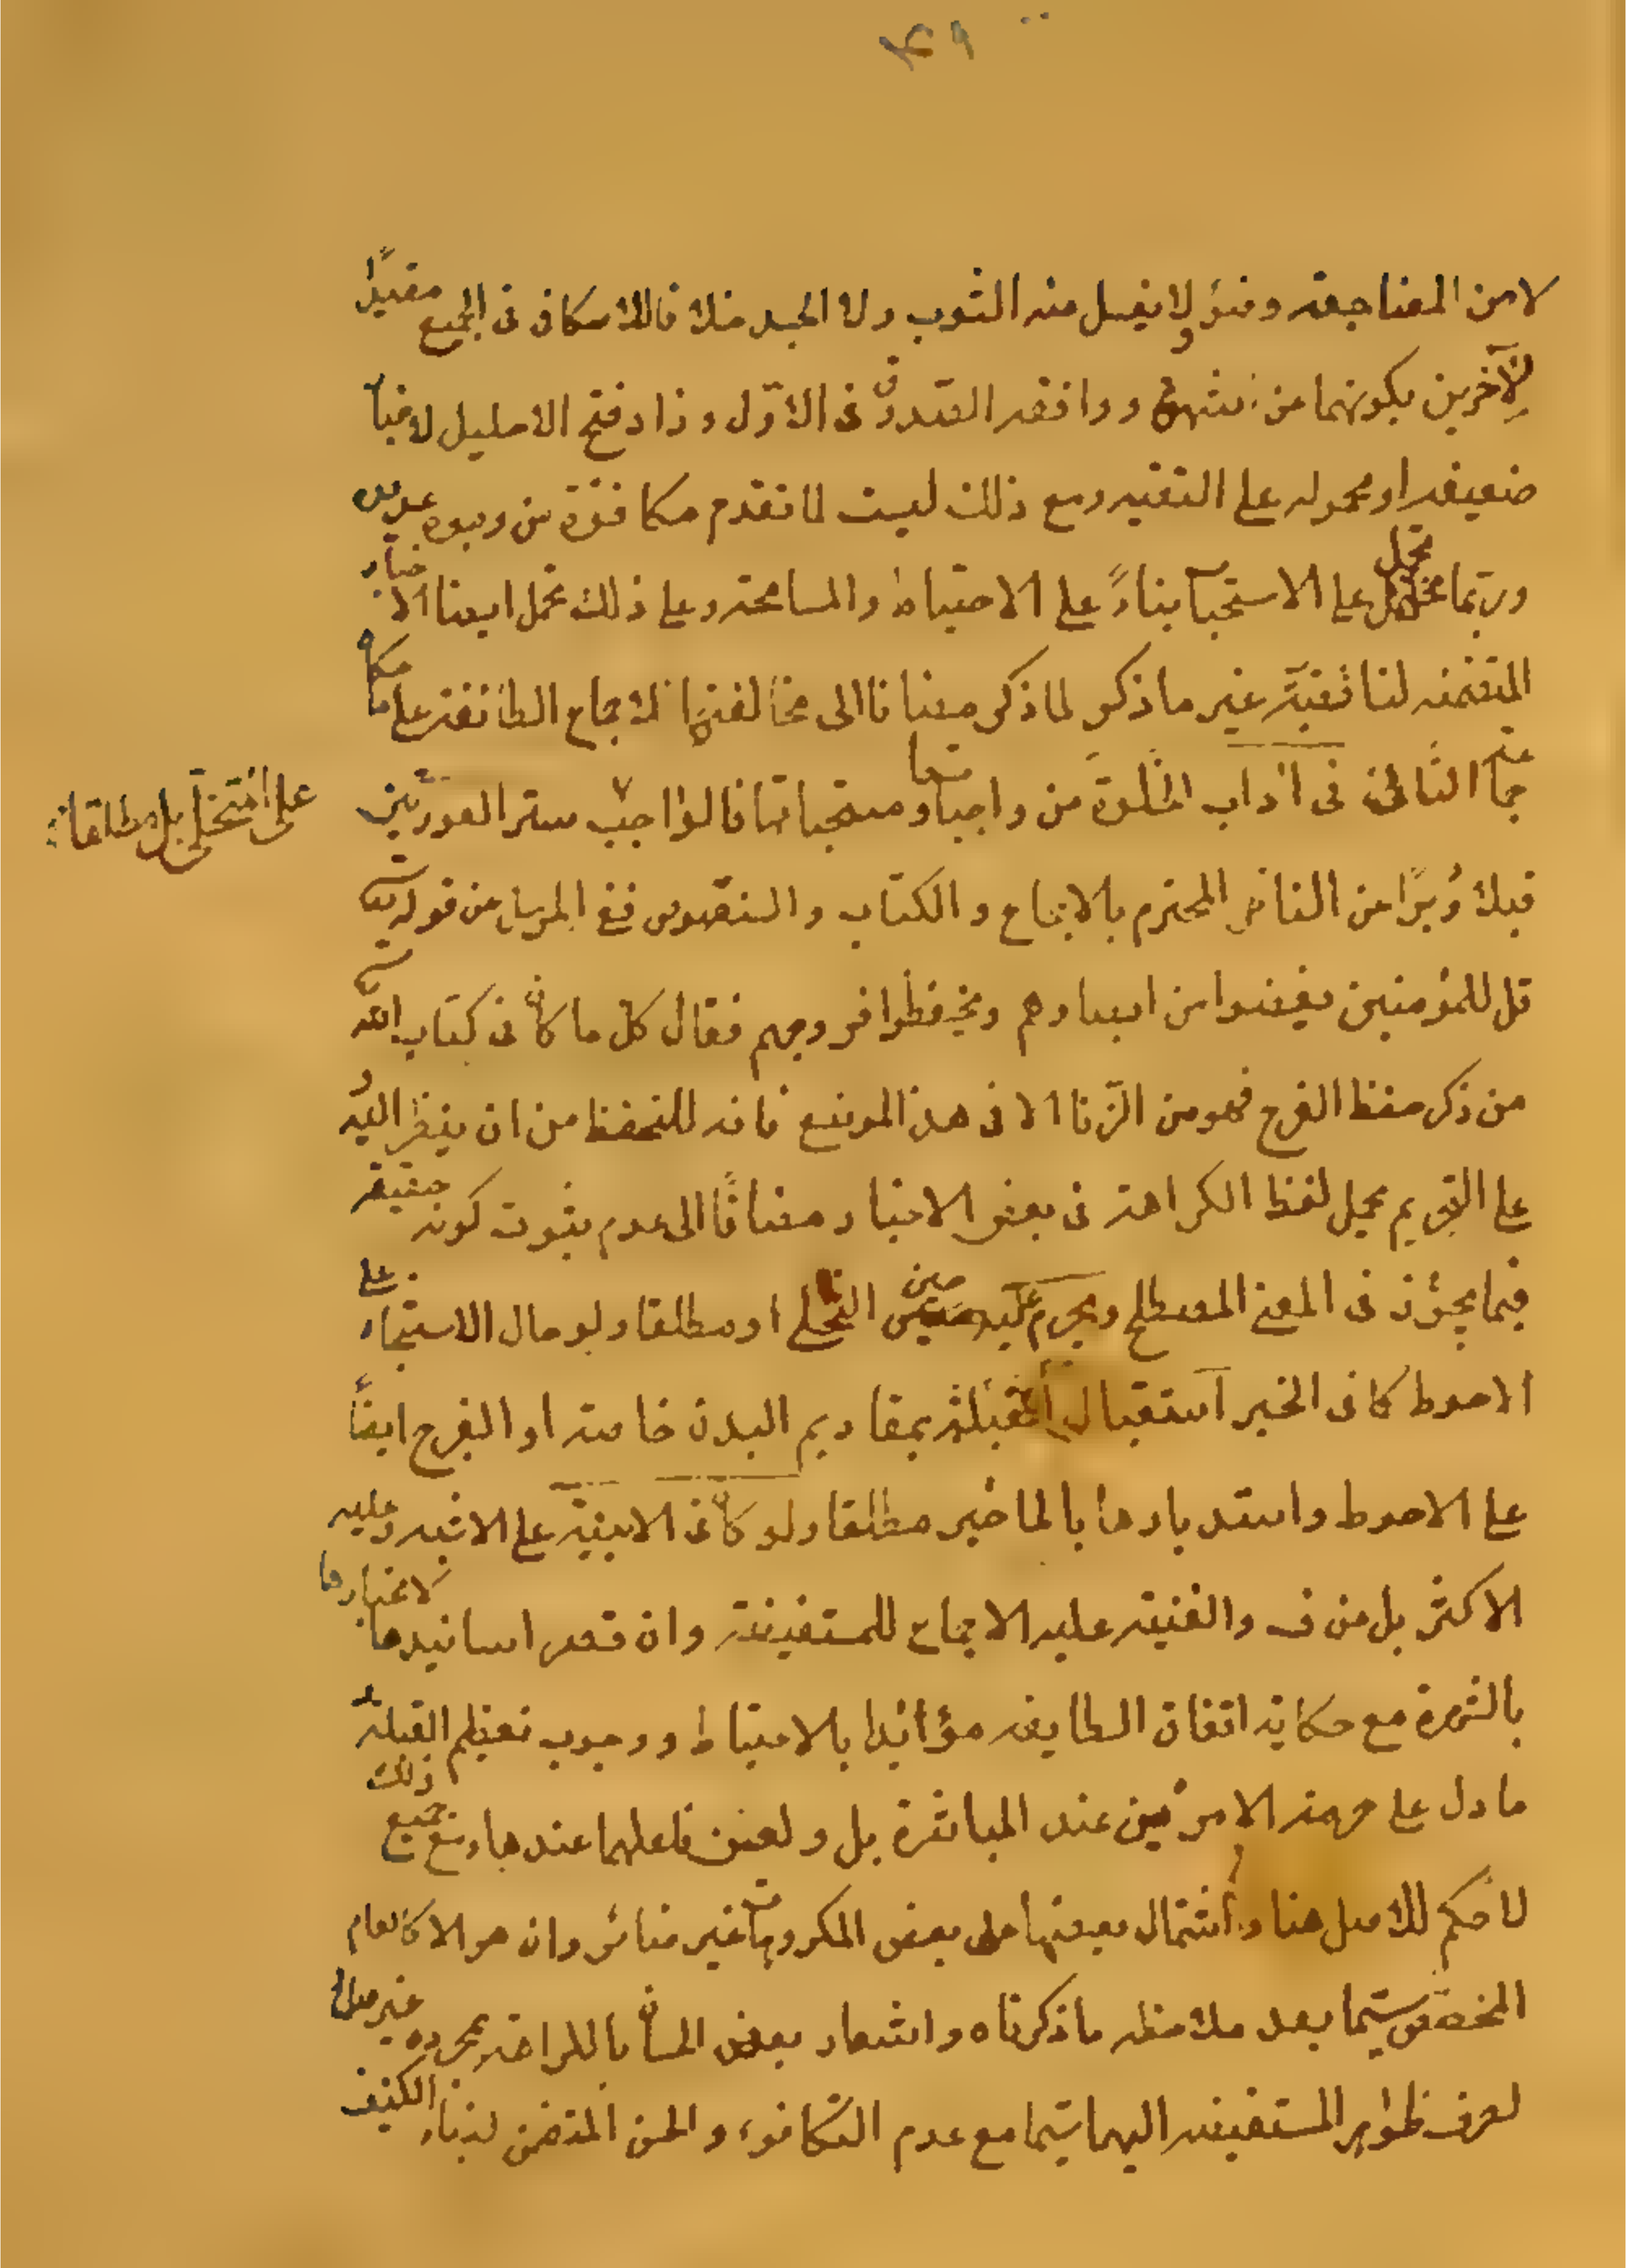 لا من المضاجعة وضؤ ولا يغسل منه الثوب ولا الجسد خلافا للاسكافى فى الجميع مقيدا
للآخرين بكونهما عن شهوة ووافقه الصدوق فى الاوّل وزاد فتح الاحليل لاخبار
ضعيفة او محمولة على التقية ومع ذلك ليست لما تقدم مكافئة من وجوه عديدة
وربّما تحمل على الاستحباب بناءً على الاحتياط والمسامحة وعلى ذلك تحمل ايضا الاخبار
المتضمنة لناقضية غير ما ذكر لما ذكر مضافا الى مخالفتها لاجماع الطائفة على ما حكاه
جماعة الثانى فى آداب الخلوة من واجباتها ومستحباتها فالواجب ستر العورتين
على المتخلّى بل مطلقا
قبلا ودبرًا عن الناظر المحترم بالاجماع والكتاب والنصوص ففى المرسل عن قوله تعالى
قل للمؤمنين يغضوا من ابصارهم ويحفظوا فروجهم فقال كل ما كان فى كتاب الله
من ذكر حفظ الفرج فهو من الزّنا الا فى هذا الموضع فانه للتحفظ من ان ينظر اليه
على التحريم يحمل لفظ الكراهة فى بعض الاخبار مضافًا الى عدم ثبوت كونه حقيقة
فيما يجوّز فى المعنى المصطلح ويحرم عليه حين التخلى او مطلقا ولو حال الاستنجاء على
الاحوط كما فى الخبر استقبال القبلة بمقاديم البدن خاصة او الفرج ايضًا
على الاحوط واستدبارها بالمآخير مطلقا ولو كان فى الابنية على الاشهر وعليه
الاكثر بل عن ف والغنية عليه الاجماع للمستفيضة وان قصر اسانيدها لانجبارها
بالشهرة مع حكاية اتفاق الطايفة مؤيدا بالاحتياط ووجوب تعظيم القبلة
ما دل على حرمة الامرين عند المباشرة بل ولعن فاعلهما عندها ومع جميع ذلك
لا حكم للاصل هنا واشتمال بعضها على بعض المكروهات غير ضائر وان هو الا كالعام
المخصّص سيّما بعد ملاحظة ما ذكرناه واشعار بعض المسائل بالكراهة بمجرده غير صالح
لصرف ظواهر المستفيضة اليها سيّما مع عدم التكافوء والحسن المتضمن لبناء الكنيف